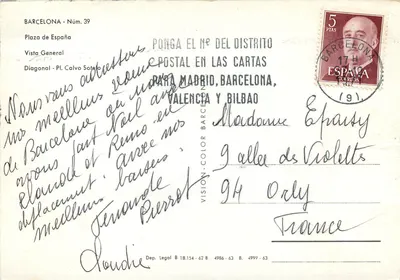 BARCELONA - Núm. 39
Plaza de España
Vista General
Diagonal - Pl. Calvo Sotelo
PONGA EL Nº DEL DISTRITO
POSTAL EN LAS CARTAS
PARA MADRID, BARCELONA,
VALENCIA Y BILBAO
5
PTAS
ESPAÑA
BARCELONA
(9)
Nous vous adressons
nos meilleurs
de Barcelone où nous
avons fait Noël avec
Claude et Rémo en
déplacement. avec nos
meilleurs baisers.
Fernande
Pierrot
Claudie
Madame
9 allée de Violettes
94 Orly
France
VISION-COLOR BARCELONA
Dep. Legal B 18.154-62 B 4986-63 B. 4999-63